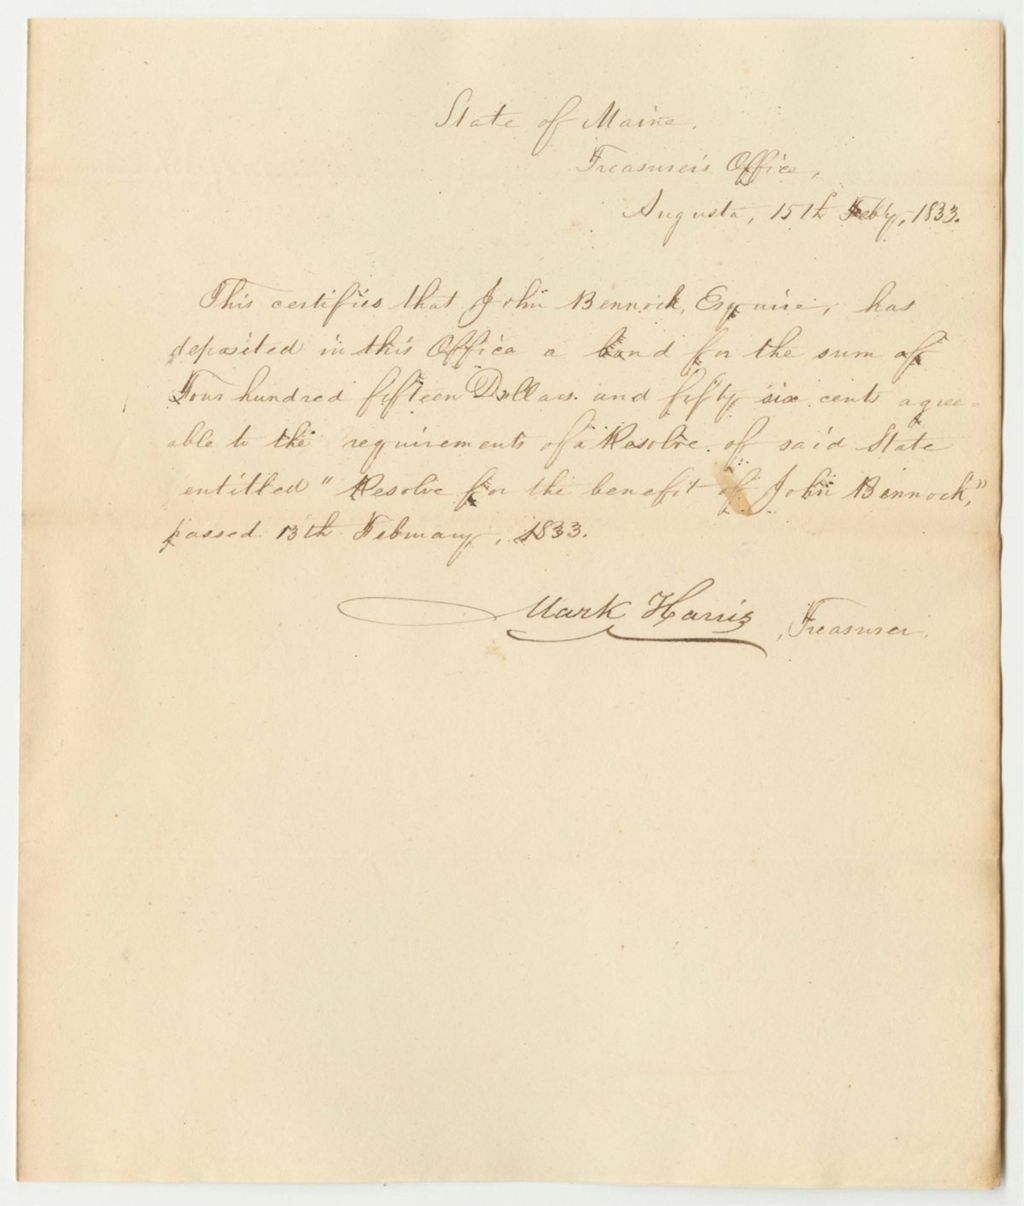 State of Maine.
Treasurer's Office,
Augusta, 15th Feb'y, 1833.
This certifies that John Bennock, Esquire, has
deposited in this Office a bond for the sum of
Four hundred fifteen Dollars and fifty six cents agree-
able to the requirements of a Resolve of said State
entitled "Resolve for the benefit of John Bennock,"
passed 13th February, 1833.
Mark Harris, Treasurer.